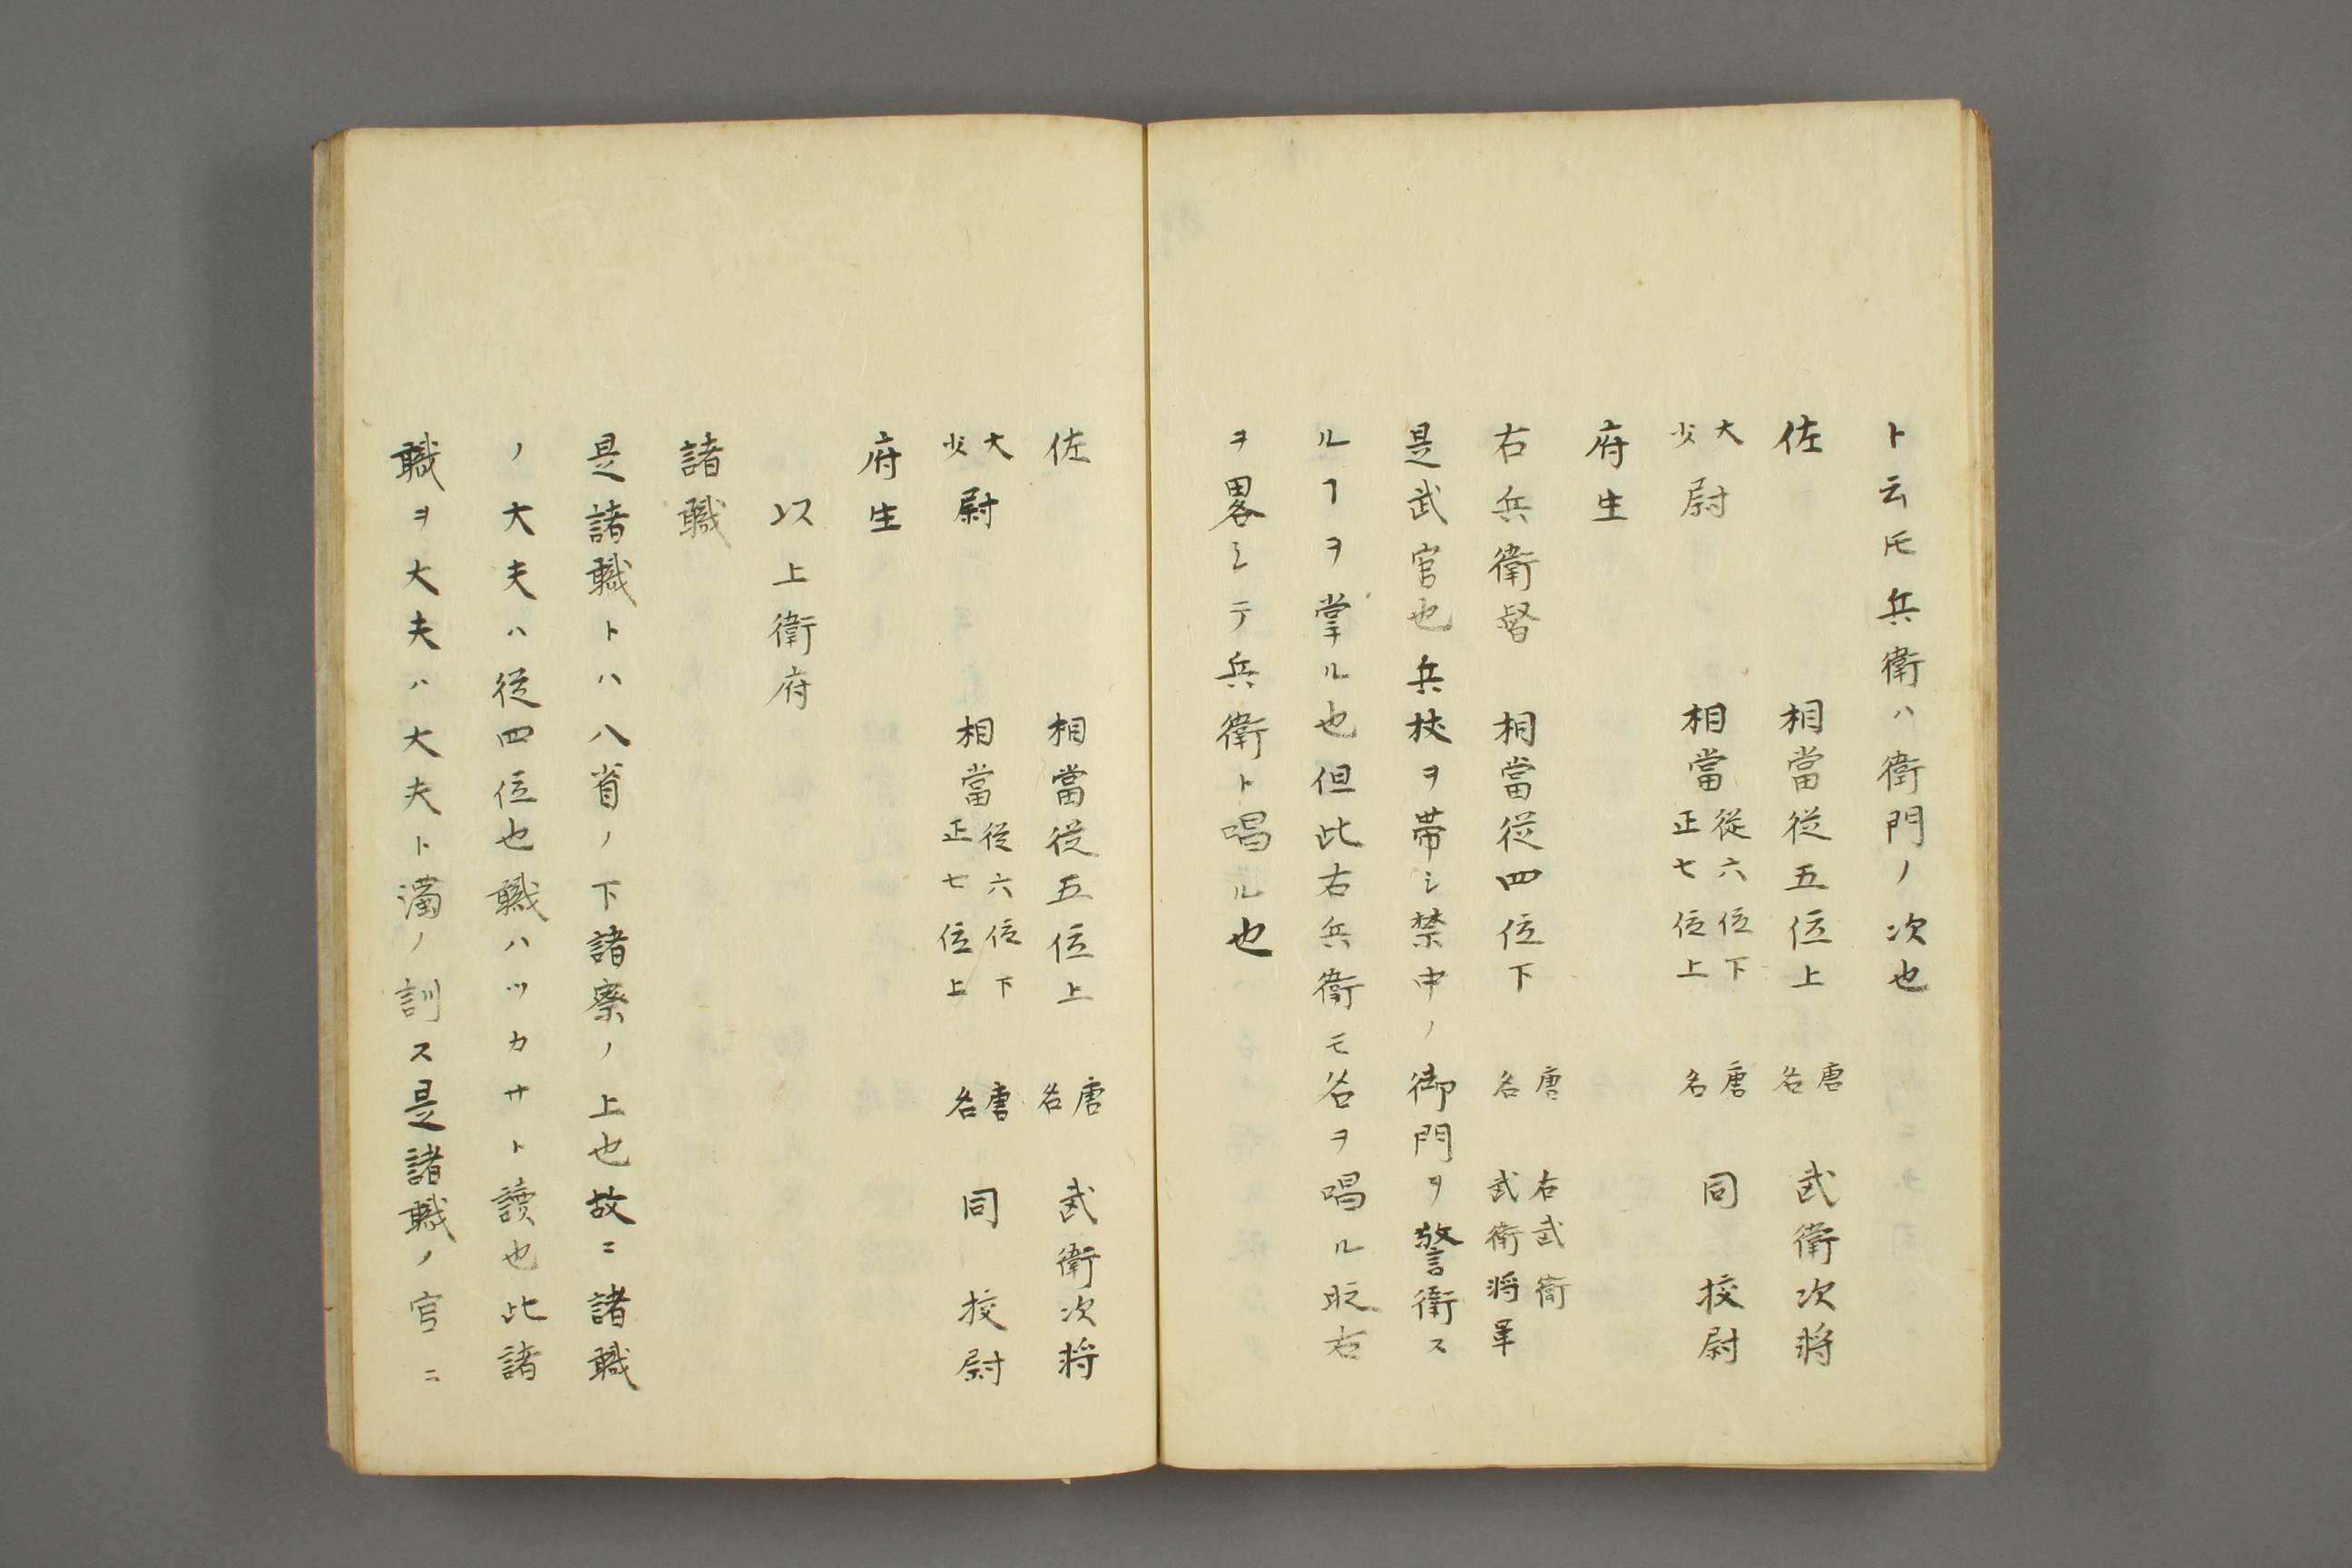 ト云𪜈兵衛ハ衛門ノ次也
佐 相當從五位上 唐名 武衛次將
大少尉 相當從六位下正七位上 唐名 同校尉
府生
右兵衛督 相當從四位下 唐名 右武衛武衛将軍
是武官也兵杖ヲ帯シ禁中ノ御門ヲ警衛ス
ルヿヲ掌ル也但此右兵衛モ名ヲ唱ル時右
ヲ畧シテ兵衛ト唱ル也
佐 相當從五位上 唐名 武衛次将
大少尉 相當從六位下正七位上 唐名 同校尉
府生
以上衛府
諸職
是諸職トハ八省ノ下諸寮ノ上也故ニ諸職
ノ大夫ハ從四位也職ハツカサト讀也此諸
職ヲ大夫ハ大夫ト濁ノ訓ス是諸職ノ官ニ